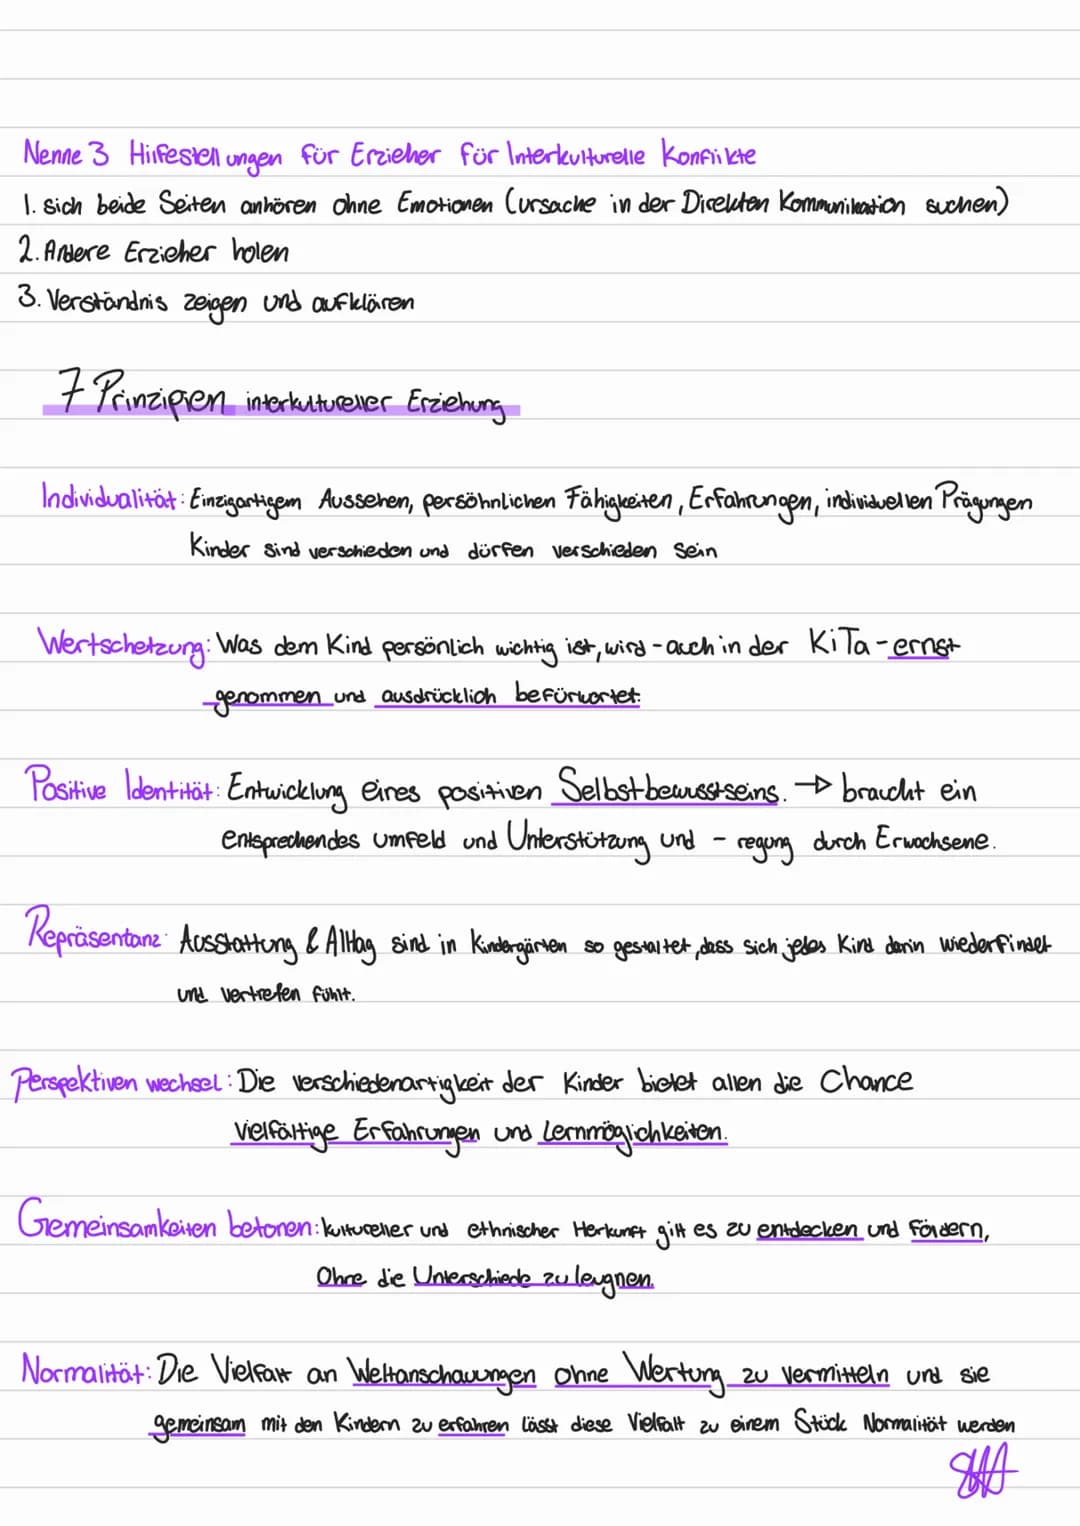 Nenne 3 Hilfestellungen für Erzieher für Interkulturelle Konflikte
1. sich beide Seiten anhören ohne Emotionen (ursache in der Direkten Kommunikation suchen)
2. Andere Erzieher holen
3. Verständnis zeigen und aufklären
7 Prinzipien interkultureller Erziehung
Individualität: Einzigartigem Aussehen, persöhnlichen Fähigkeiten, Erfahrungen, individuellen Prägungen
Kinder sind verschieden und dürfen verschieden sein
Wertschetzung: Was dem Kind persönlich wichtig ist, wird - auch in der KiTa - ernst
genommen und ausdrücklich befürwortet.
Positive Identität: Entwicklung eines positiven Selbstbewusstseins. → braucht ein
entsprechendes umfeld und Unterstützung und - regung durch Erwachsene.
Repräsentanz: Ausstattung & Alltag sind in Kindergärten so gestaltet, dass sich jedes Kind darin wiederfindet
und vertreten fühlt.
Perspektiven wechsel: Die verschiedenartigkeit der Kinder bietet allen die Chance
vielfältige Erfahrungen und Lernmöglichkeiten.
Gemeinsamkeiten betonen: kultureller und ethnischer Herkunft gilt es zu entdecken und fördern,
Ohne die Unterschiede zu leugnen.
Normalität: Die Vielfalt an Weltanschauungen ohne Wertung zu vermitteln und sie
gemeinsam mit den Kindern zu erfahren lässt diese Vielfalt zu einem Stück Normalität werden